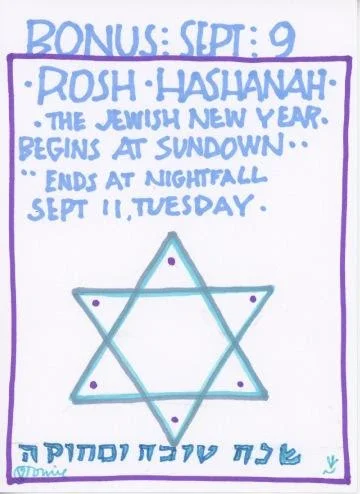 BONUS: SEPT: 9
·ROSH·HASHANAH·
·THE JEWISH NEW YEAR·
BEGINS AT SUNDOWN··
··ENDS AT NIGHTFALL
SEPT 11, TUESDAY·
שנה טובה ומתוקה
Tomie